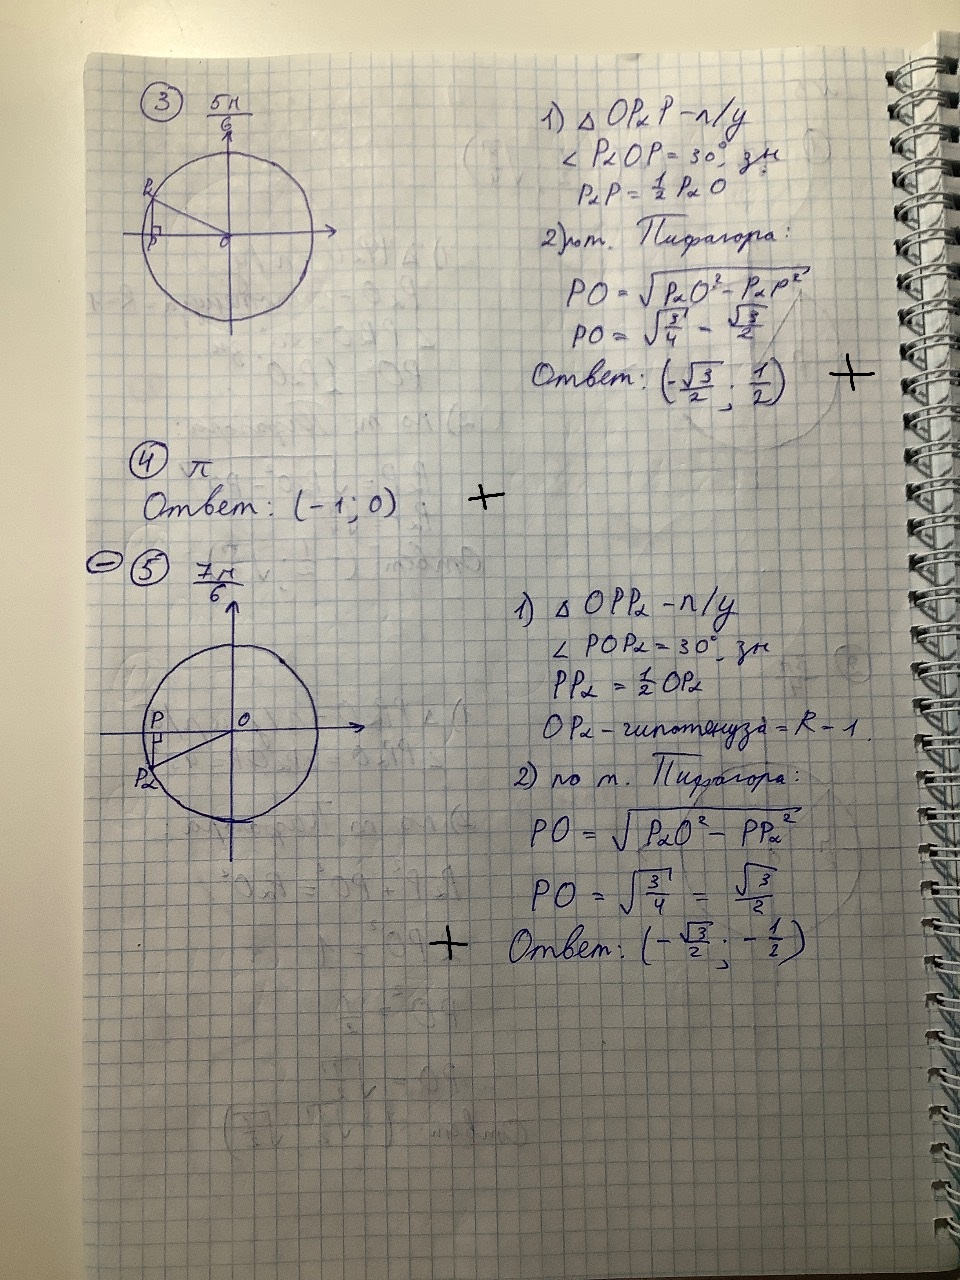 3 5π/6
P₂
P
O
1) △ OP₂P – п/у
∠ P₂OP = 30°, зн.
P₂P = 1/2 P₂O
2) по т. Пифагора:
PO = √(P₂O² – P₂P²)
PO = √(3/4) = √3/2
Ответ: (-√3/2 ; 1/2) +
4 π
Ответ: (-1; 0) +
– 5 7π/6
P
O
P₂
1) △ OPP₂ – п/у
∠ POP₂ = 30°, зн
PP₂ = 1/2 OP₂
OP₂ – гипотенуза = R = 1.
2) по т. Пифагора:
PO = √(P₂O² – PP₂²)
PO = √(3/4) = √3/2
+ Ответ: (-√3/2 ; -1/2)